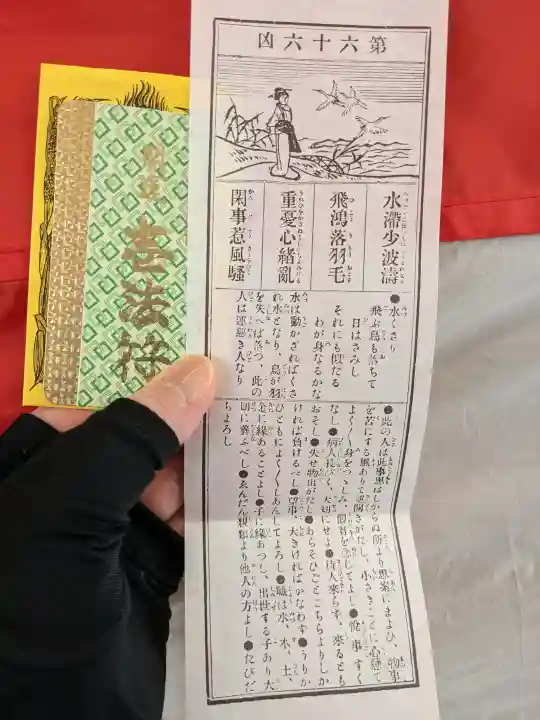 第六十六凶
水滯少波濤
飛鴻落羽毛
重憂心緒亂
閑事惹風騷
●水くさり
飛ぶ鳥も落ちて
日はさみし
それにも似たる
わが身なるかな
水は動かざればくさ
れ水となり、鳥が羽
を失へば落つ、此の
人は運惡き人なり
●此の人は此事惡はしからぬ所より思案にまよひ、物事
を苦にする風ありて運開きがたし、小さきことに心懸て
よく〱身をつゝしみ、觀音を念じてよし●悅事すく
なし●病人長びく、大切にせよ●待人來らず、來るとも
おそし●失せ物出がたし●あらそひごとこちらよりしか
ければ負けるべし●望事、大きければかなわず●うりか
ひともによく〱しあんしてよろし●職は水、木、土、
金に緣あることよし●子に緣あつし、出世する子あり大
切に養ふべし●ゑんだん親類より他人の方よし●たびだ
ちよろし